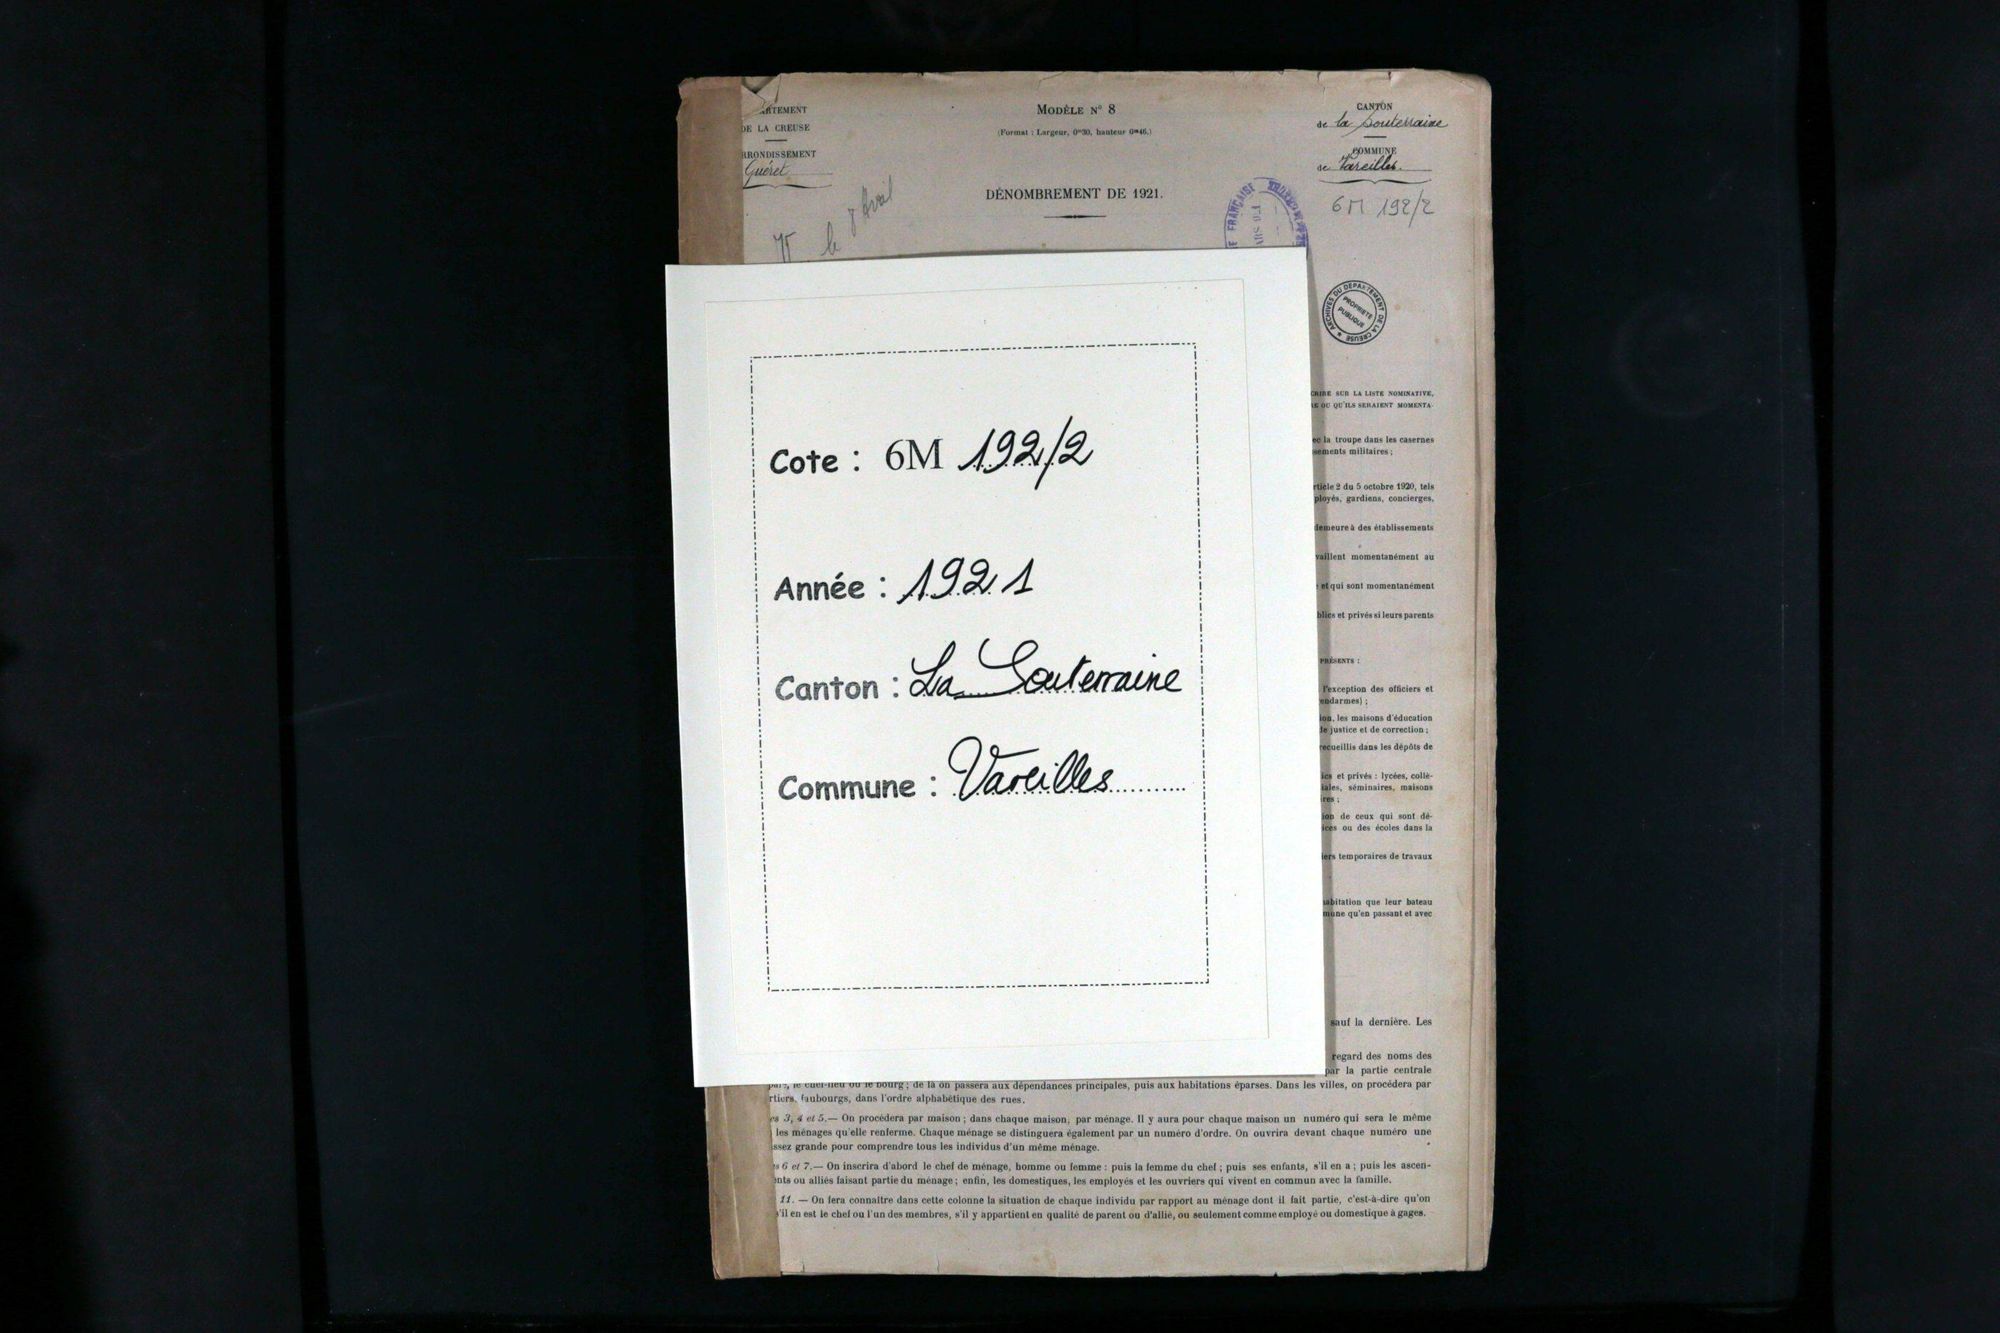 RTEMENT
DE LA CREUSE
RRONDISSEMENT
Guéret
MODÈLE N° 8
(Format : Largeur, 0m30, hauteur 0m46.)
DÉNOMBREMENT DE 1921.
CANTON
de la Souterraine
COMMUNE
de Vareilles
6M 192/2
le 7 Avril
FRANÇAISE
ARCHIVES DU DÉPARTEMENT DE LA CREUSE
PROPRIÉTÉ
PUBLIQUE
Cote : 6M 192/2
Année : 1921
Canton : La Souterraine
Commune : Vareilles
CRIRE SUR LA LISTE NOMINATIVE,
RE OU QU'ILS SERAIENT MOMENTA-
ec la troupe dans les casernes
sements militaires ;
rticle 2 du 5 octobre 1920, tels
ployés, gardiens, concierges,
demeure à des établissements
vaillent momentanément au
et qui sont momentanément
blics et privés si leurs parents
PRÉSENTS :
l'exception des officiers et
endarmes) ;
ion, les maisons d'éducation
de justice et de correction ;
recueillis dans les dépôts de
ics et privés : lycées, collè-
iales, séminaires, maisons
res ;
ion de ceux qui sont dé-
ices ou des écoles dans la
iers temporaires de travaux
habitation que leur bateau
mune qu'en passant et avec
sauf la dernière. Les
regard des noms des
par la partie centrale
part, le chef-lieu ou le bourg ; de là on passera aux dépendances principales, puis aux habitations éparses. Dans les villes, on procédera par
rtiers, faubourgs, dans l'ordre alphabétique des rues.
es 3, 4 et 5. — On procédera par maison ; dans chaque maison, par ménage. Il y aura pour chaque maison un numéro qui sera le même
les ménages qu'elle renferme. Chaque ménage se distinguera également par un numéro d'ordre. On ouvrira devant chaque numéro une
ssez grande pour comprendre tous les individus d'un même ménage.
s 6 et 7. — On inscrira d'abord le chef de ménage, homme ou femme : puis la femme du chef ; puis ses enfants, s'il en a ; puis les ascen-
ents ou alliés faisant partie du ménage ; enfin, les domestiques, les employés et les ouvriers qui vivent en commun avec la famille.
11. — On fera connaître dans cette colonne la situation de chaque individu par rapport au ménage dont il fait partie, c'est-à-dire qu'on
s'il en est le chef ou l'un des membres, s'il y appartient en qualité de parent ou d'allié, ou seulement comme employé ou domestique à gages.